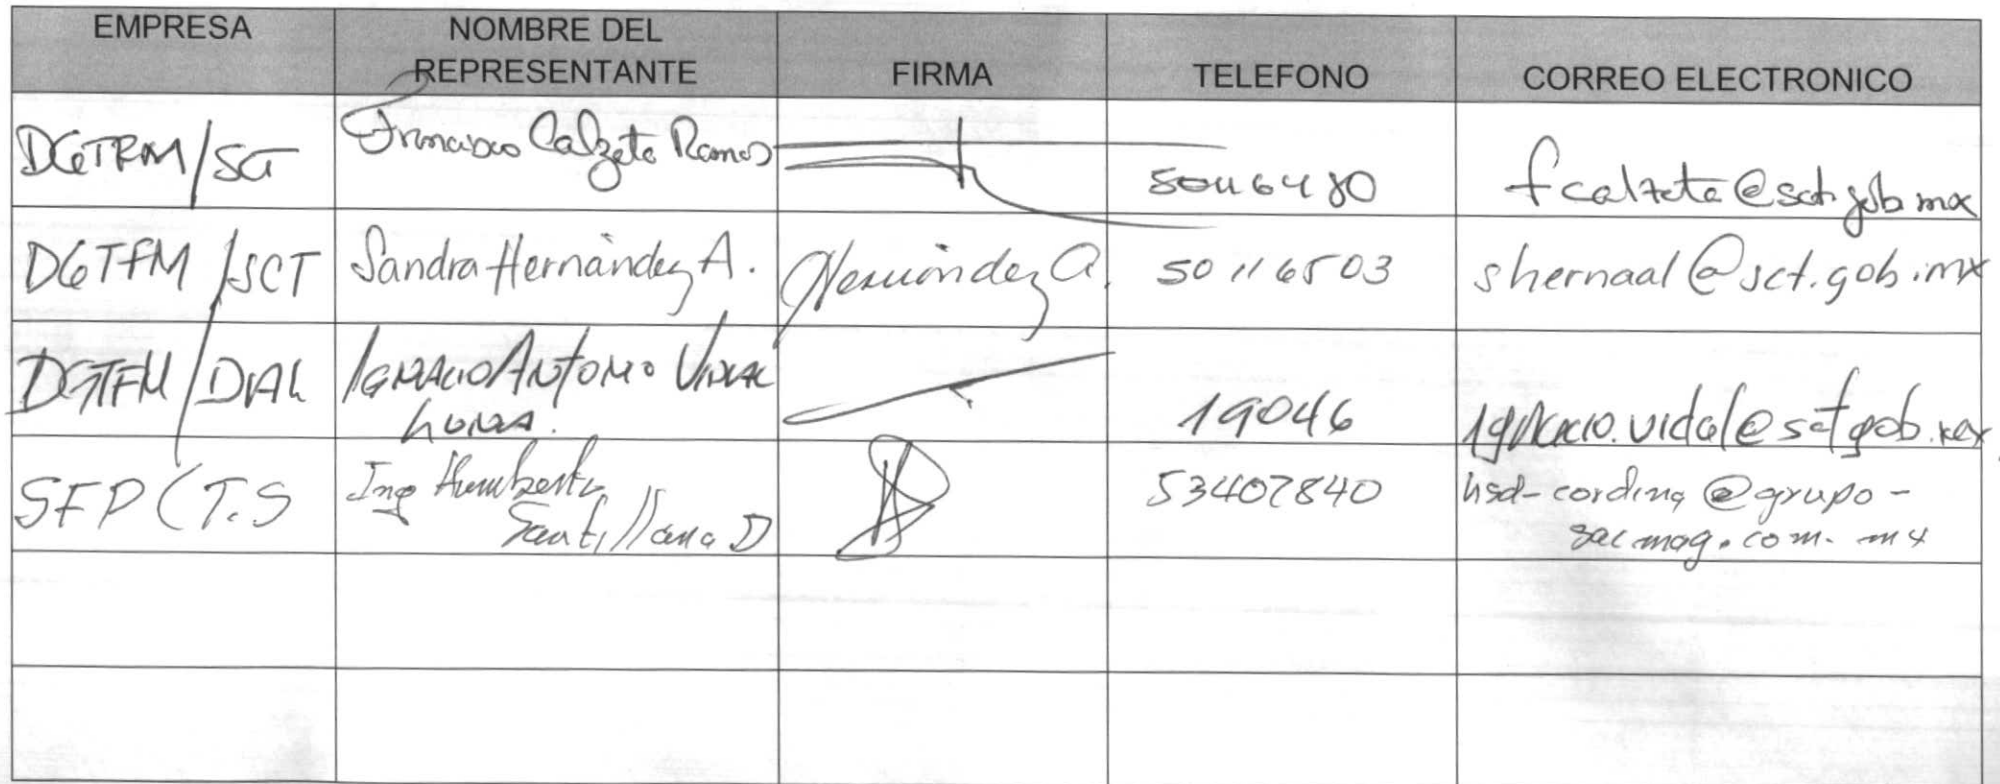 EMPRESA NOMBRE DEL REPRESENTANTE FIRMA TELEFONO CORREO ELECTRONICO
DGTFM/SCT Francisco Calzeta Ramos 50116480 fcalzeta@sct.gob.mx
DGTFM/SCT Sandra Hernández A. Hernández A. 50116503 shernaal@sct.gob.mx
DGTFM/DIAL IGNACIO ANTONIO VIDAL
LUNA. 19046 ignacio.vidal@sct.gob.mx
SFP (T.S Ing Humberto
Santillana D 53407840 hsd-cording@grupo-
sacmag.com.mx